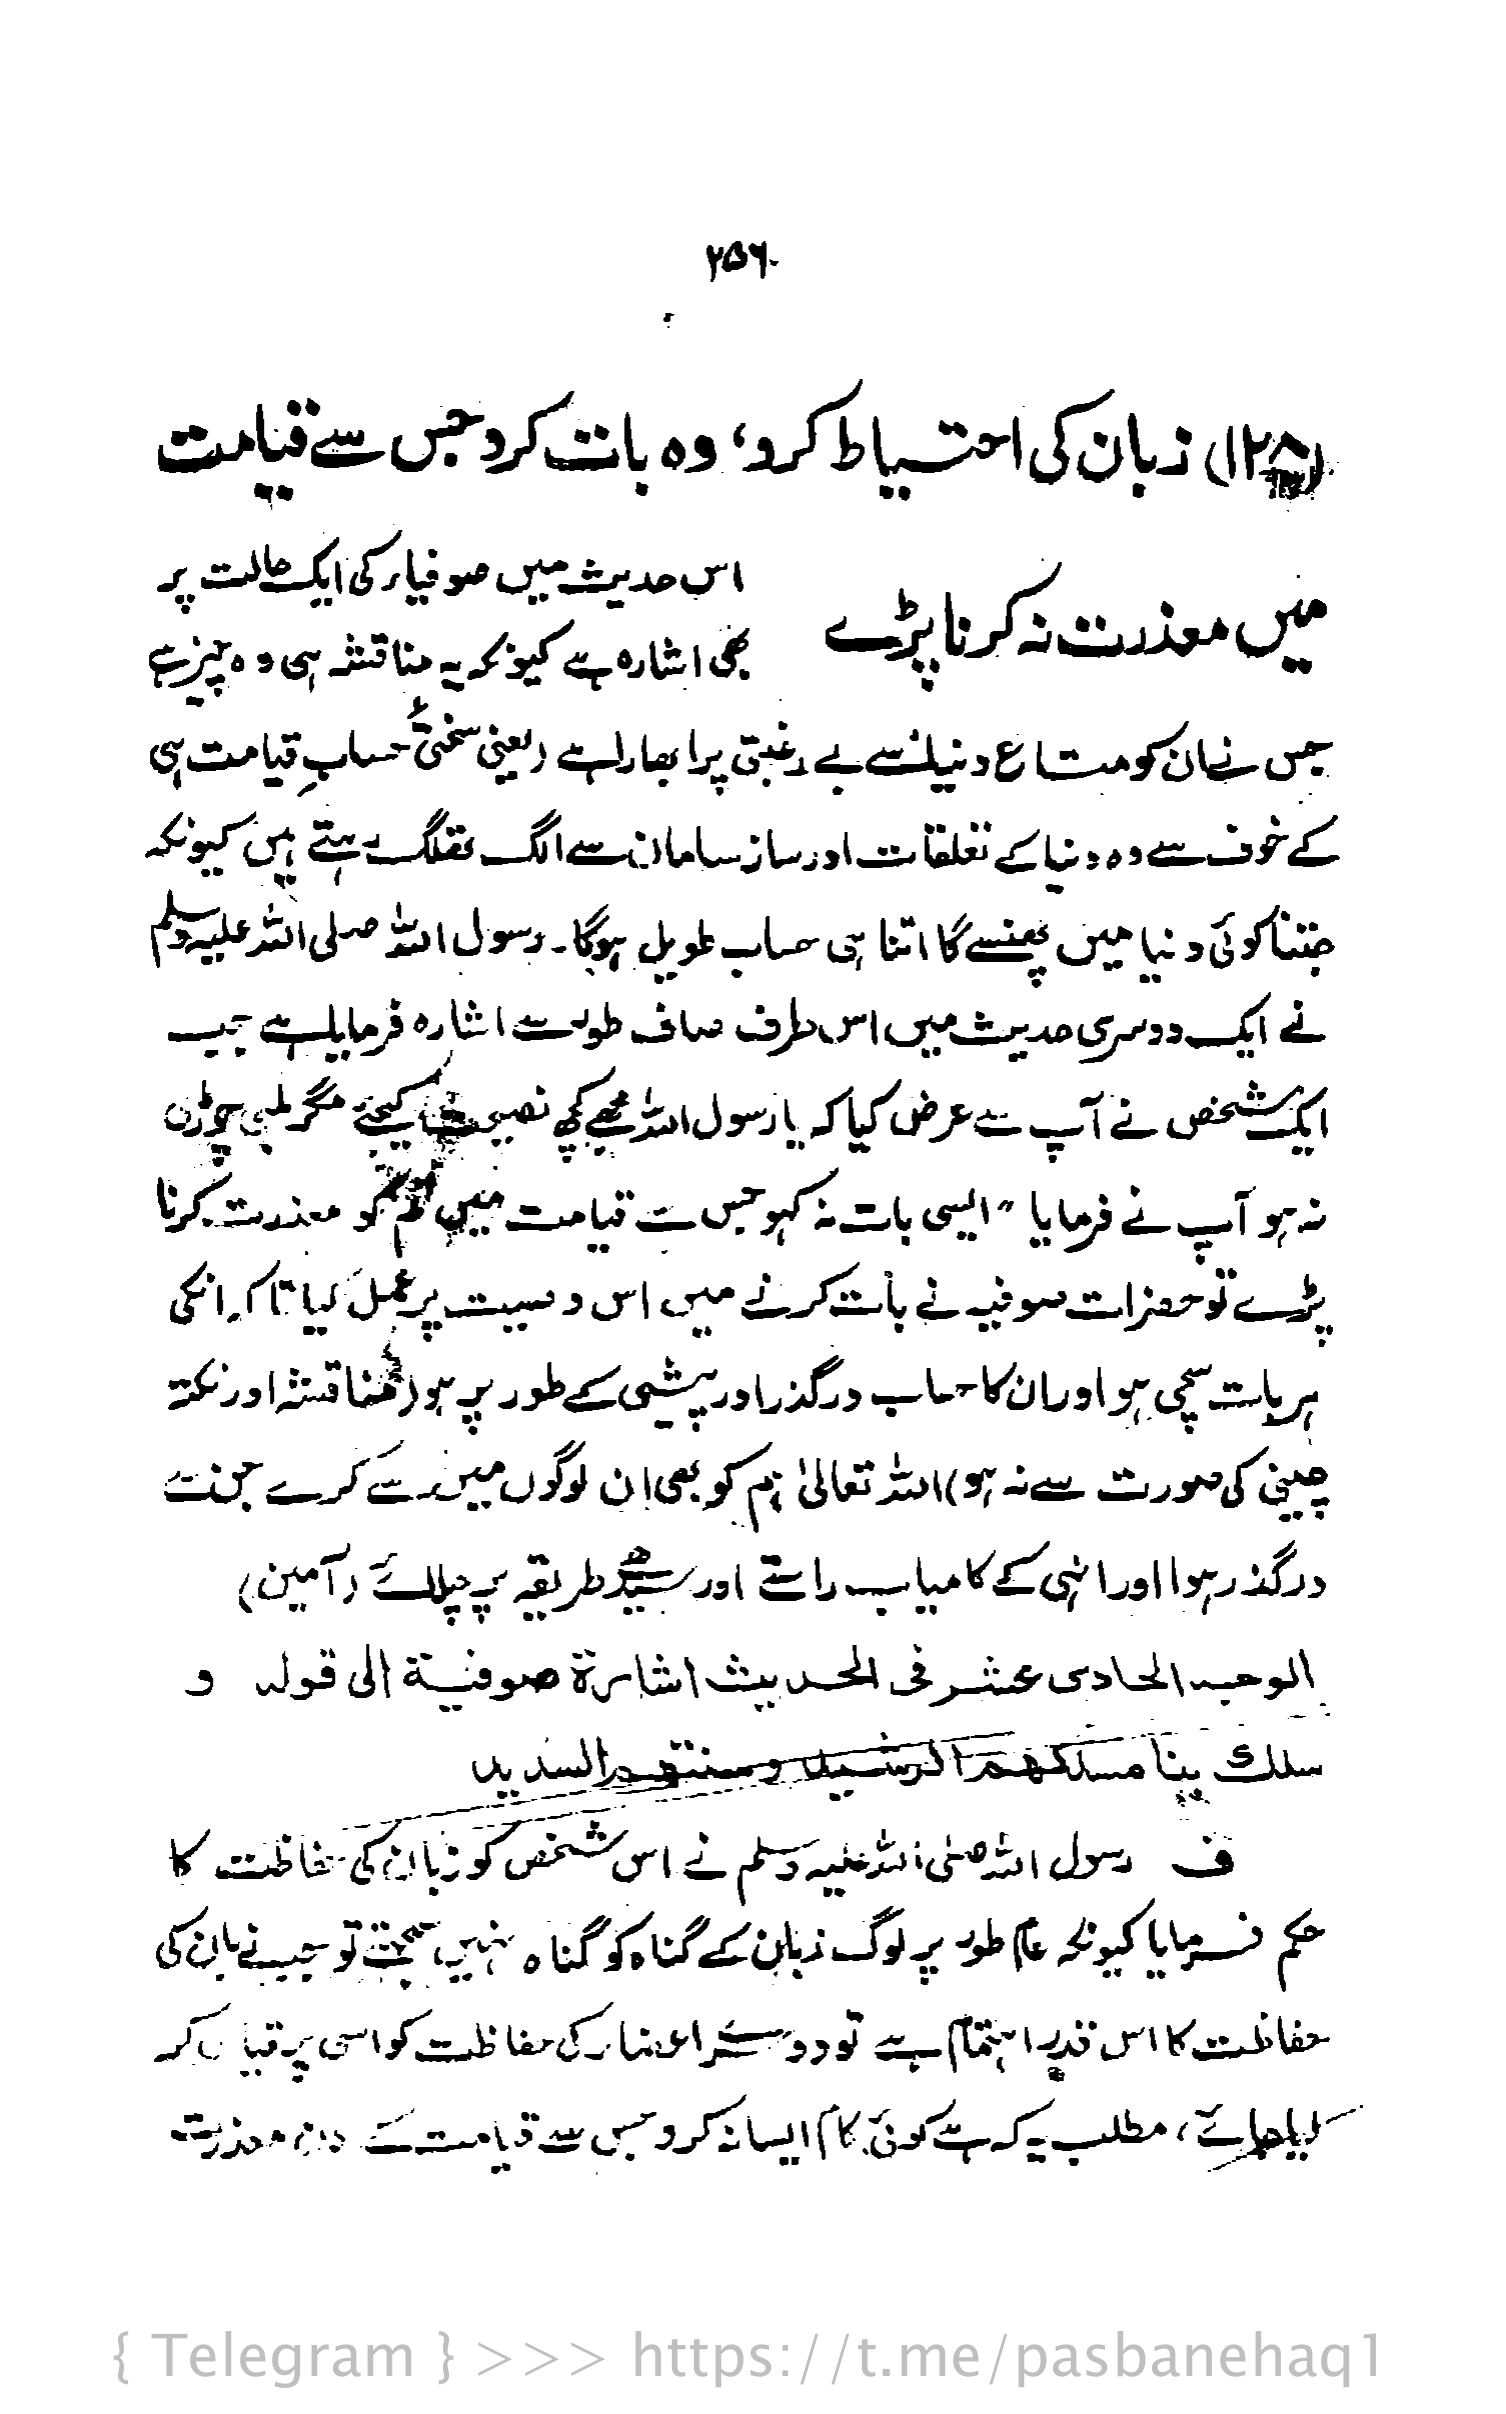 ۲۵۶
(۱۲۸) زبان کی احتیاط کرو، وہ بات کرو جس سے قیامت
میں معذرت نہ کرنا پڑے
اس حدیث میں صوفیاء کی ایک حالت پر
بھی اشارہ ہے کیونکہ یہ مناقشہ ہی وہ چیز ہے
جس نے ان کو متاع دنیا سے بے رغبتی پر ابھارا ہے (یعنی سختیٔ حسابِ قیامت ہی
کے خوف سے وہ دنیا کے تعلقات اور ساز سامان سے الگ تھلگ رہتے ہیں کیونکہ
جتنا کوئی دنیا میں پھنسے گا اتنا ہی حساب طویل ہوگا۔ رسول اللہ صلی اللہ علیہ وسلم
نے ایک دوسری حدیث میں اس طرف صاف طور سے اشارہ فرمایا ہے جب
ایک شخص نے آپ سے عرض کیا کہ یا رسول اللہ مجھے کچھ نصیحت کیجئے مگر لمبی چوڑی
نہ ہو آپ نے فرمایا " ایسی بات نہ کہو جس سے قیامت میں تم کو معذرت کرنا
پڑے تو حضرات صوفیہ نے بات کرنے میں اس وصیت پر عمل کیا تاکہ انکی
ہر بات سچی ہو اور ان کا حساب درگذر اور پیشی کے طور پر ہو (مناقشہ اور نکتہ
چینی کی صورت سے نہ ہو) اللہ تعالیٰ ہم کو بھی ان لوگوں میں سے کرے جن سے
درگذر ہوا اور انہی کے کامیاب راستے اور سیدھے طریقہ پر چلائے (آمین)
الوجہ الحادی عشر فی الحدیث اشارۃ صوفیۃ الی قولہ و
سلک بنا مسلکھم الرشید وسنتھم السدید
ف رسول اللہ صلی اللہ علیہ وسلم نے اس شخص کو زبان کی حفاظت کا
حکم فرمایا کیونکہ عام طور پر لوگ زبان کے گناہ کو گناہ نہیں سمجھتے تو جب زبان کی
حفاظت کا اس قدر اہتمام ہے تو دوسرے اعضاء کی حفاظت کو اسی پر قیاس کر
لیا جائے، مطلب یہ کہ ہے کوئی کام ایسا نہ کرو جس سے قیامت کے دن معذرت
{ Telegram } >>> https://t.me/pasbanehaq1